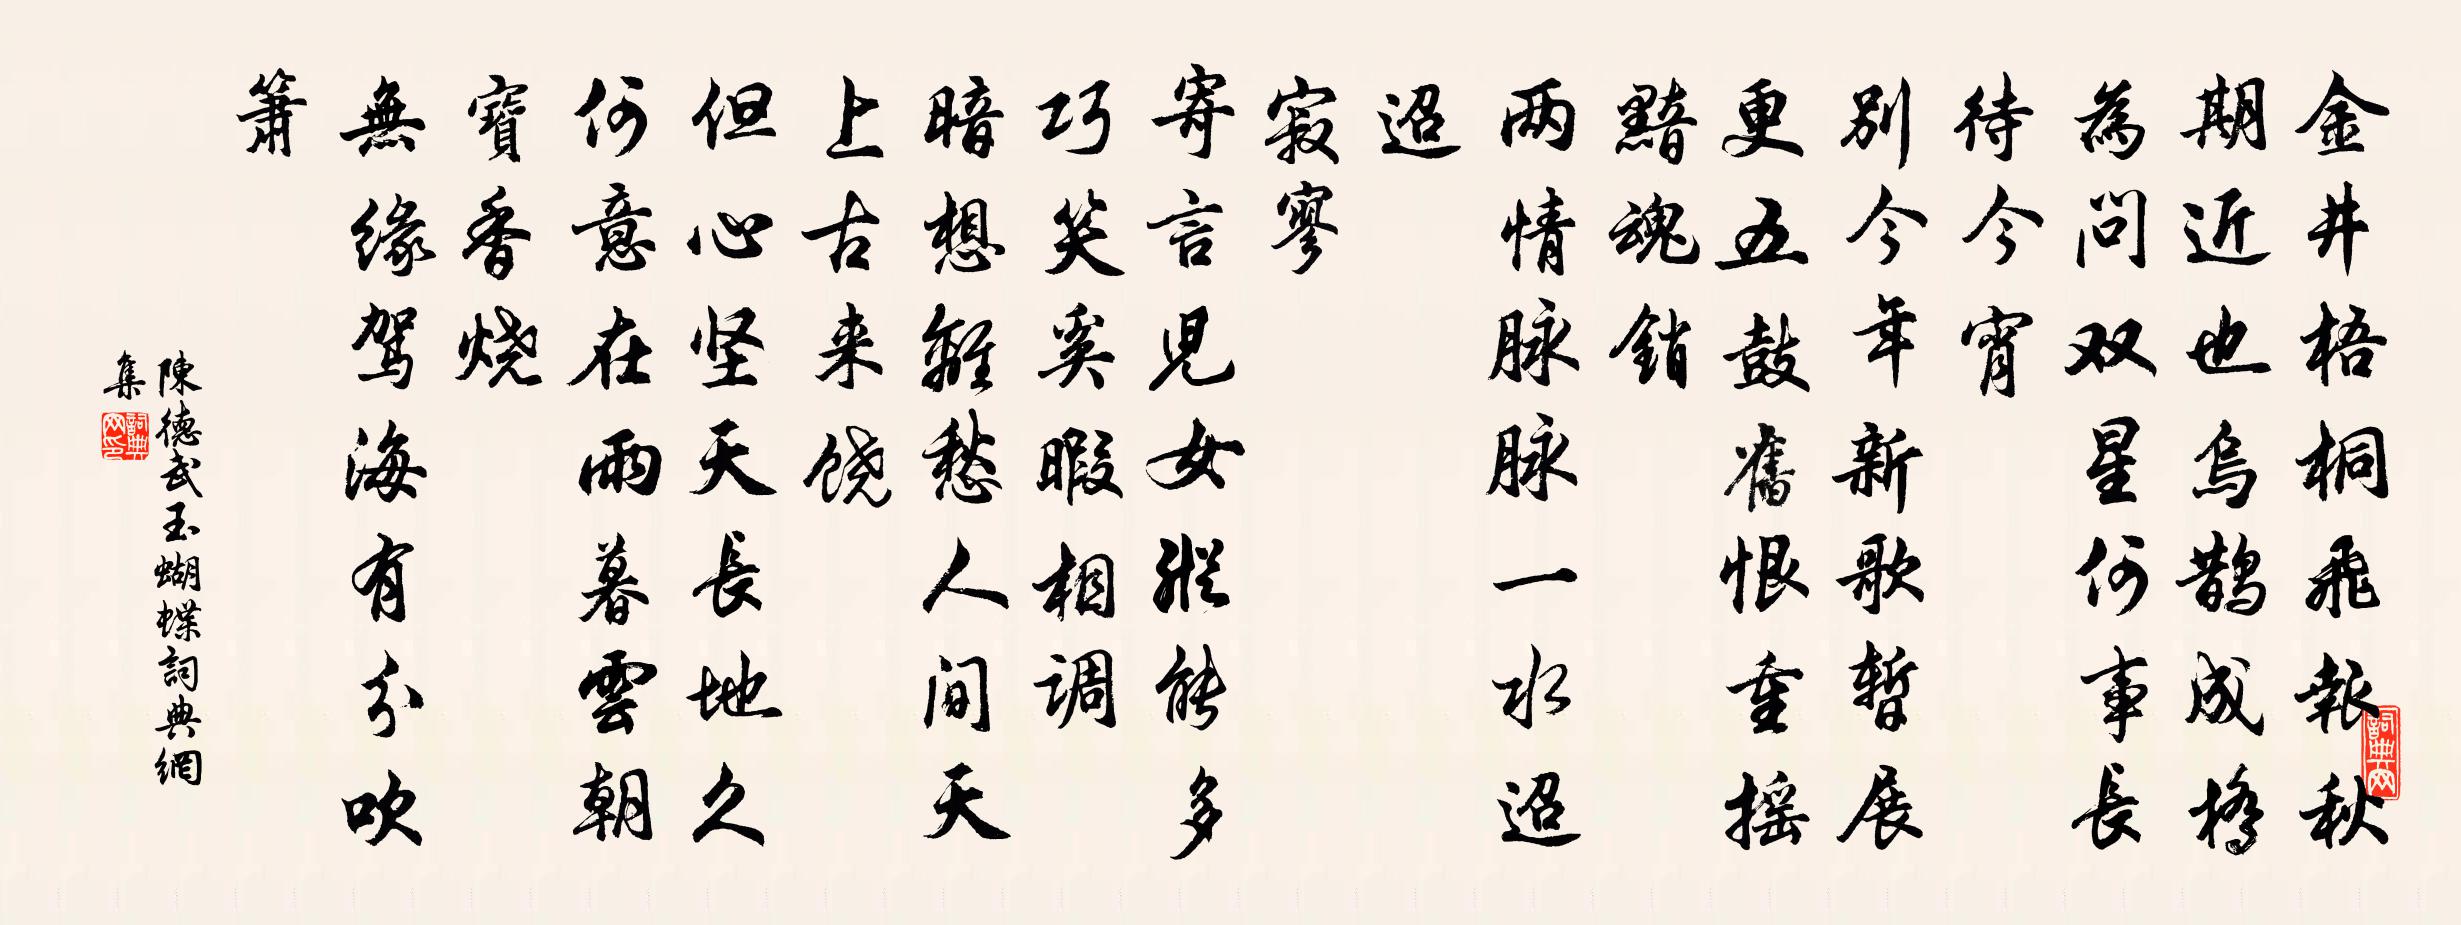 金井梧桐飛報秋
期近也烏鵲成橋
為问双星何事長
待今宵
别今年新歌暫展
更五鼓舊恨重摇
黯魂銷
两情脉脉一水迢
迢
寂寥
寄言児女縱能多
巧笑奚暇相調
暗想離愁人间天
上古来饶
但心坚天長地久
何意在雨暮雲朝
寶香烧
無缘驾海有分吹
箫
陳德武玉蝴蝶詞典網
集
詞典网印
詞典网